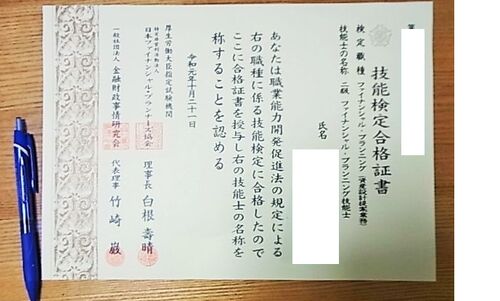 第
技能検定合格証書
検定職種 ファイナンシャル・プランニング(資産設計提案業務)
技能士の名称 二級 ファイナンシャル・プランニング技能士
氏名
あなたは職業能力開発促進法の規定による
右の職種に係る技能検定に合格したので
ここに合格証書を授与し右の技能士の名称を
称することを認める
令和元年十月二十一日
厚生労働大臣指定試験機関
特定非営利活動法人
日本ファイナンシャル・プランナーズ協会
理事長 白根壽晴
一般社団法人 金融財政事情研究会
代表理事 竹崎巌